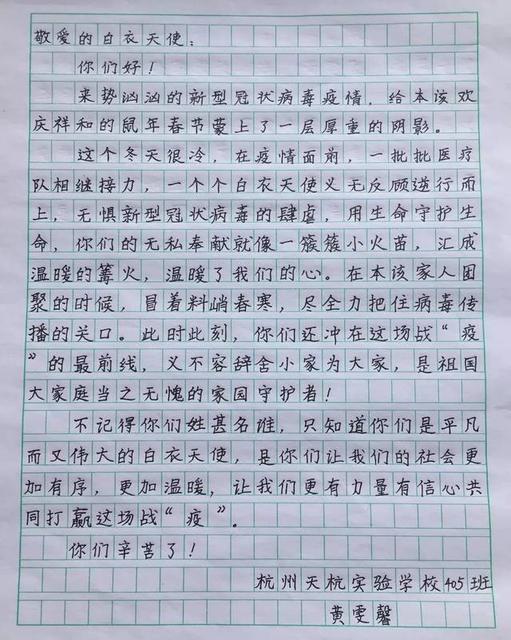 敬爱的白衣天使：
你们好！
来势汹汹的新型冠状病毒疫情，给本该欢
庆祥和的鼠年春节蒙上了一层厚重的阴影。
这个冬天很冷，在疫情面前，一批批医疗
队相继接力，一个个白衣天使义无反顾逆行而
上，无惧新型冠状病毒的肆虐，用生命守护生
命，你们的无私奉献就像一簇簇小火苗，汇成
温暖的篝火，温暖了我们的心。在本该家人团
聚的时候，冒着料峭春寒，尽全力把住病毒传
播的关口。此时此刻，你们还冲在这场战“疫
”的最前线，义不容辞舍小家为大家，是祖国
大家庭当之无愧的家国守护者！
不记得你们姓甚名谁，只知道你们是平凡
而又伟大的白衣天使，是你们让我们的社会更
加有序，更加温暖，让我们更有力量有信心共
同打赢这场战“疫”。
你们辛苦了！
杭州天杭实验学校405班
黄雯馨